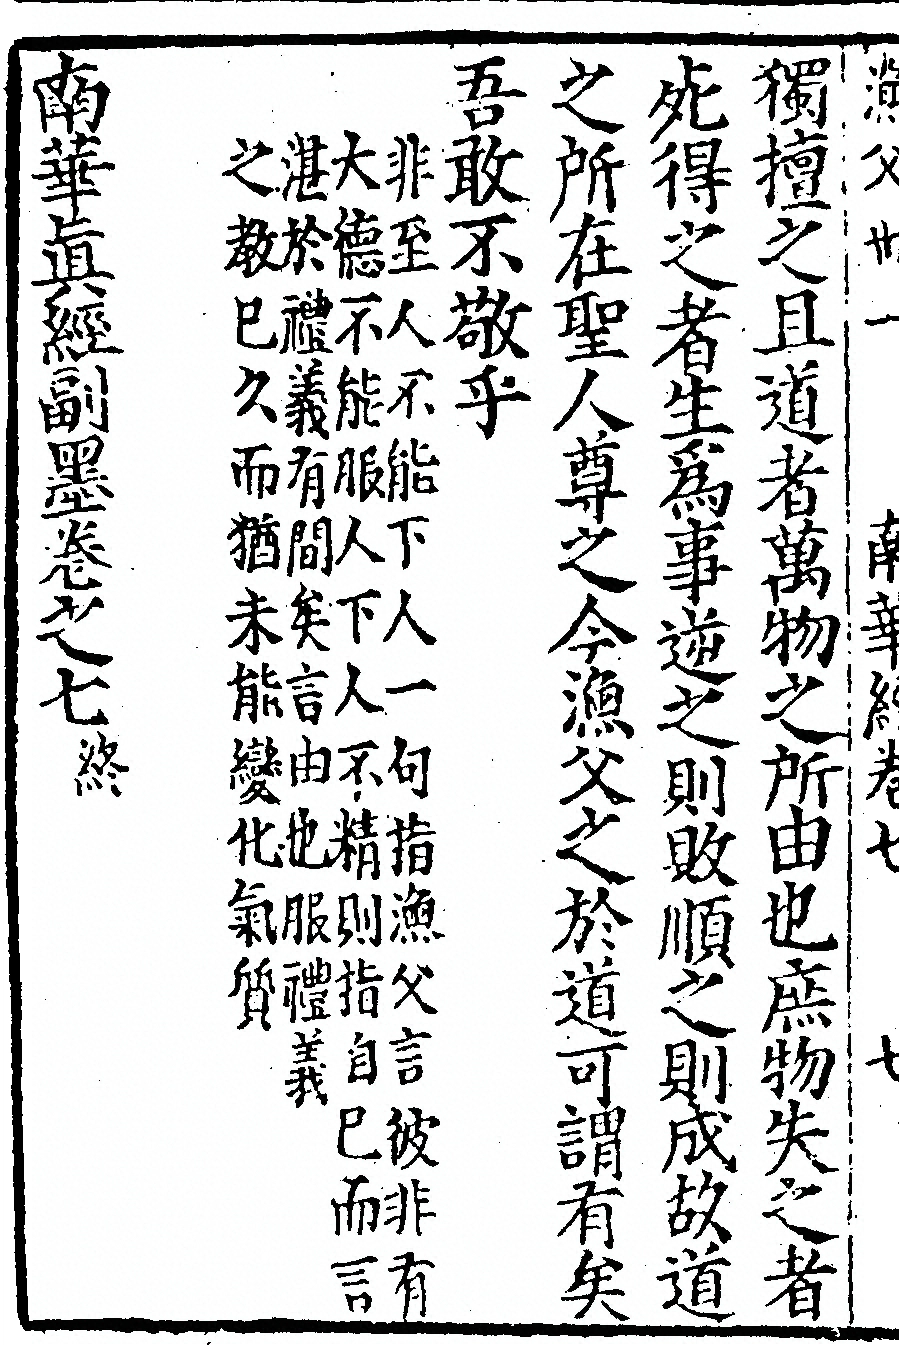 漁父卅一 南華經卷七 七
獨擅之且道者萬物之所由也庶物失之者
死得之者生爲事逆之則敗順之則成故道
之所在聖人尊之今漁父之於道可謂有矣
吾敢不敬乎
非至人不能下人一句指漁父言彼非有
大德不能服人下人不精則指自己而言
湛於禮義有間矣言由也服禮義
之教已久而猶未能變化氣質
南華眞經副墨卷之七終